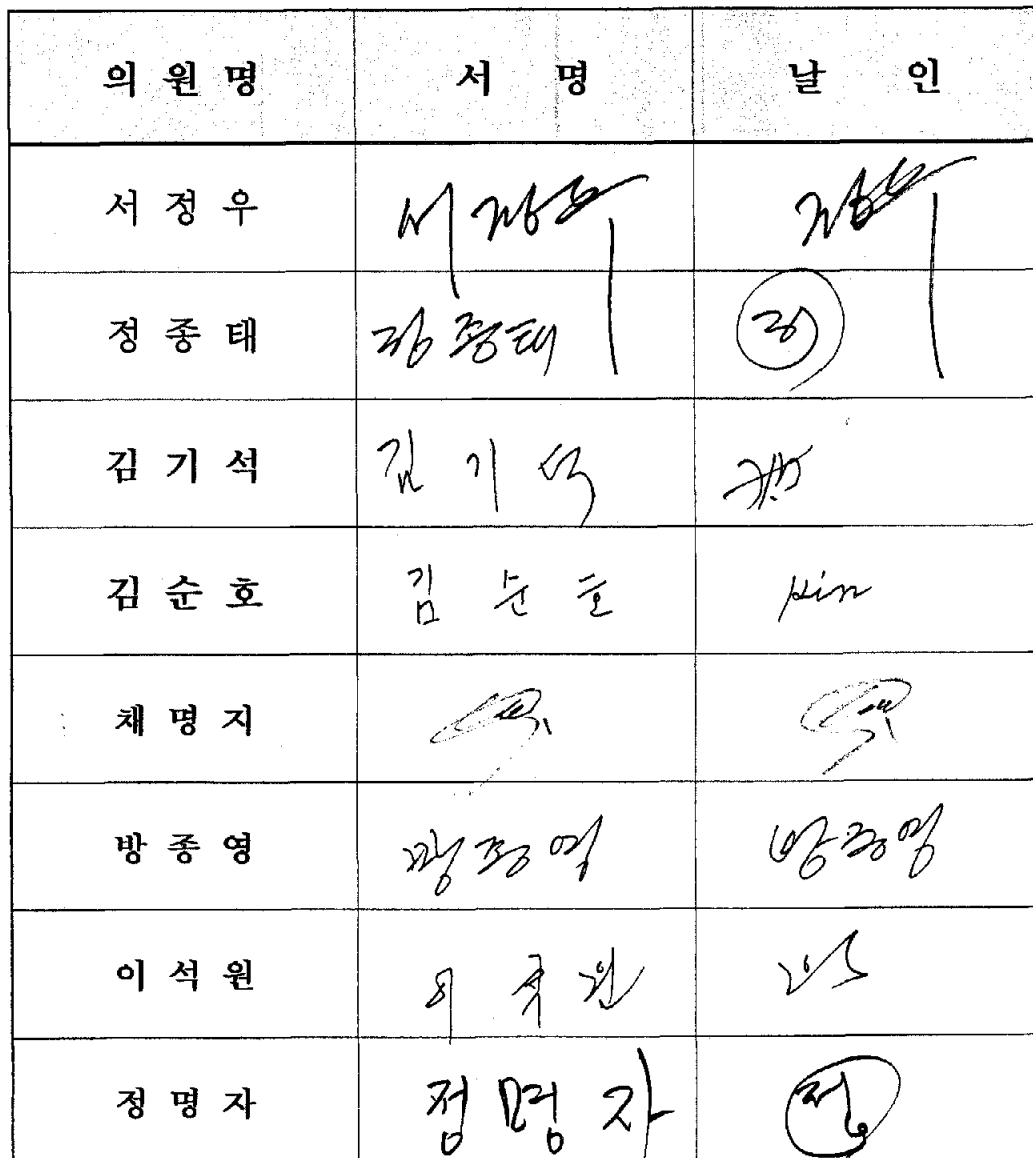 의 원 명 서 명 날 인
서 정 우 서정우 정우
정 종 태 정종태 정
김 기 석 김 기 석
김 순 호 김 순 호 Kim
채 명 지
방 종 영 방종영 방종영
이 석 원 이 석 원
정 명 자 정 명 자 정